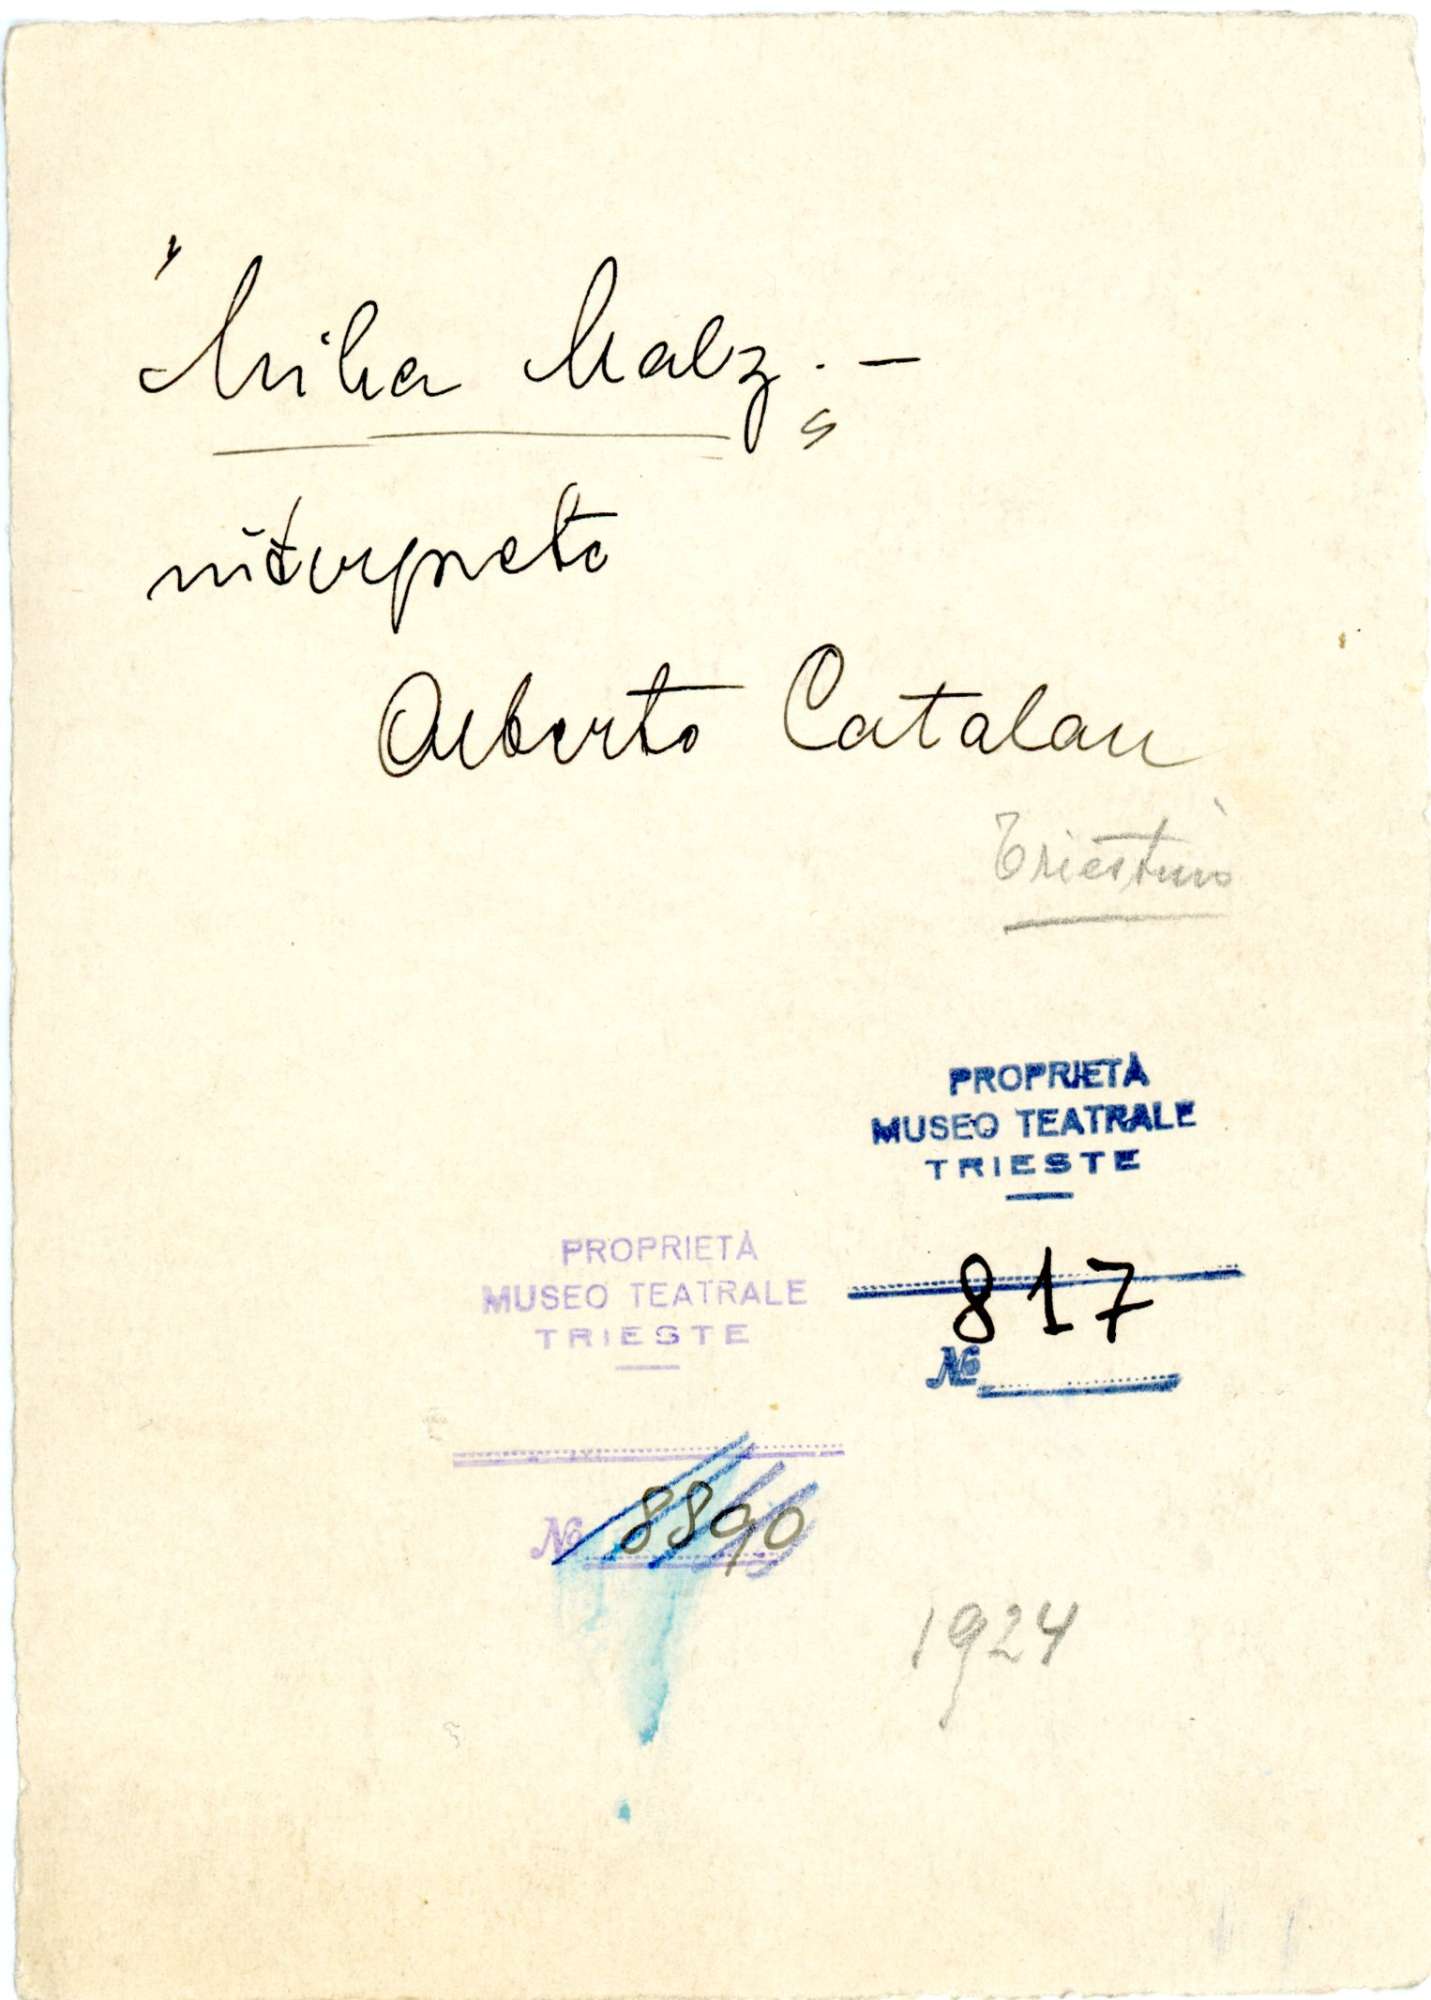 "Mika Malz. –
interprete
Alberto Catalan
Triestino
PROPRIETÀ
MUSEO TEATRALE
TRIESTE
817
№
PROPRIETÀ
MUSEO TEATRALE
TRIESTE
№ 8890
1924